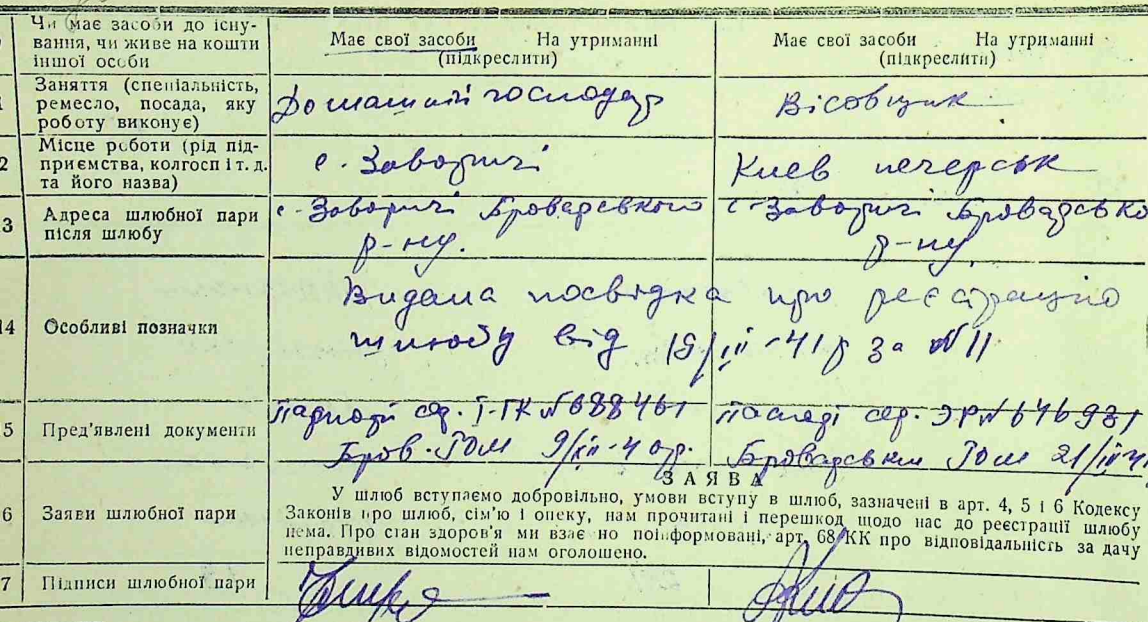 Чи має засоби до існу-
вання, чи живе на кошти
іншої особи
Має свої засоби На утриманні
(підкреслити)
Має свої засоби На утриманні
(підкреслити)
1
Заняття (спеціальність,
ремесло, посада, яку
роботу виконує)
господар
Вісовщик
2
Місце роботи (рід під-
приємства, колгосп і т. д.
та його назва)
с. Заворичі
Киев печерськ
13
Адреса шлюбної пари
після шлюбу
с. Заворичі Броварського
р-ну.
с. Заворичі Броварсько
р-ну.
14
Особливі позначки
Видана посвідка про реєстрацію
шлюбу від 19/III-41р за №11
5
Пред'явлені документи
сер. І-ГК №688461
Бров. РОМ
сер. ЭР №646931
РОМ
ЗАЯВА
6
Заяви шлюбної пари
У шлюб вступаємо добровільно, умови вступу в шлюб, зазначені в арт. 4, 5 і 6 Кодексу
Законів про шлюб, сім'ю і опеку, нам прочитані і перешкод щодо нас до реєстрації шлюбу
нема. Про стан здоров'я ми взаємно поінформовані, арт. 68 КК про відповідальність за дачу
неправдивих відомостей нам оголошено.
7
Підписи шлюбної пари